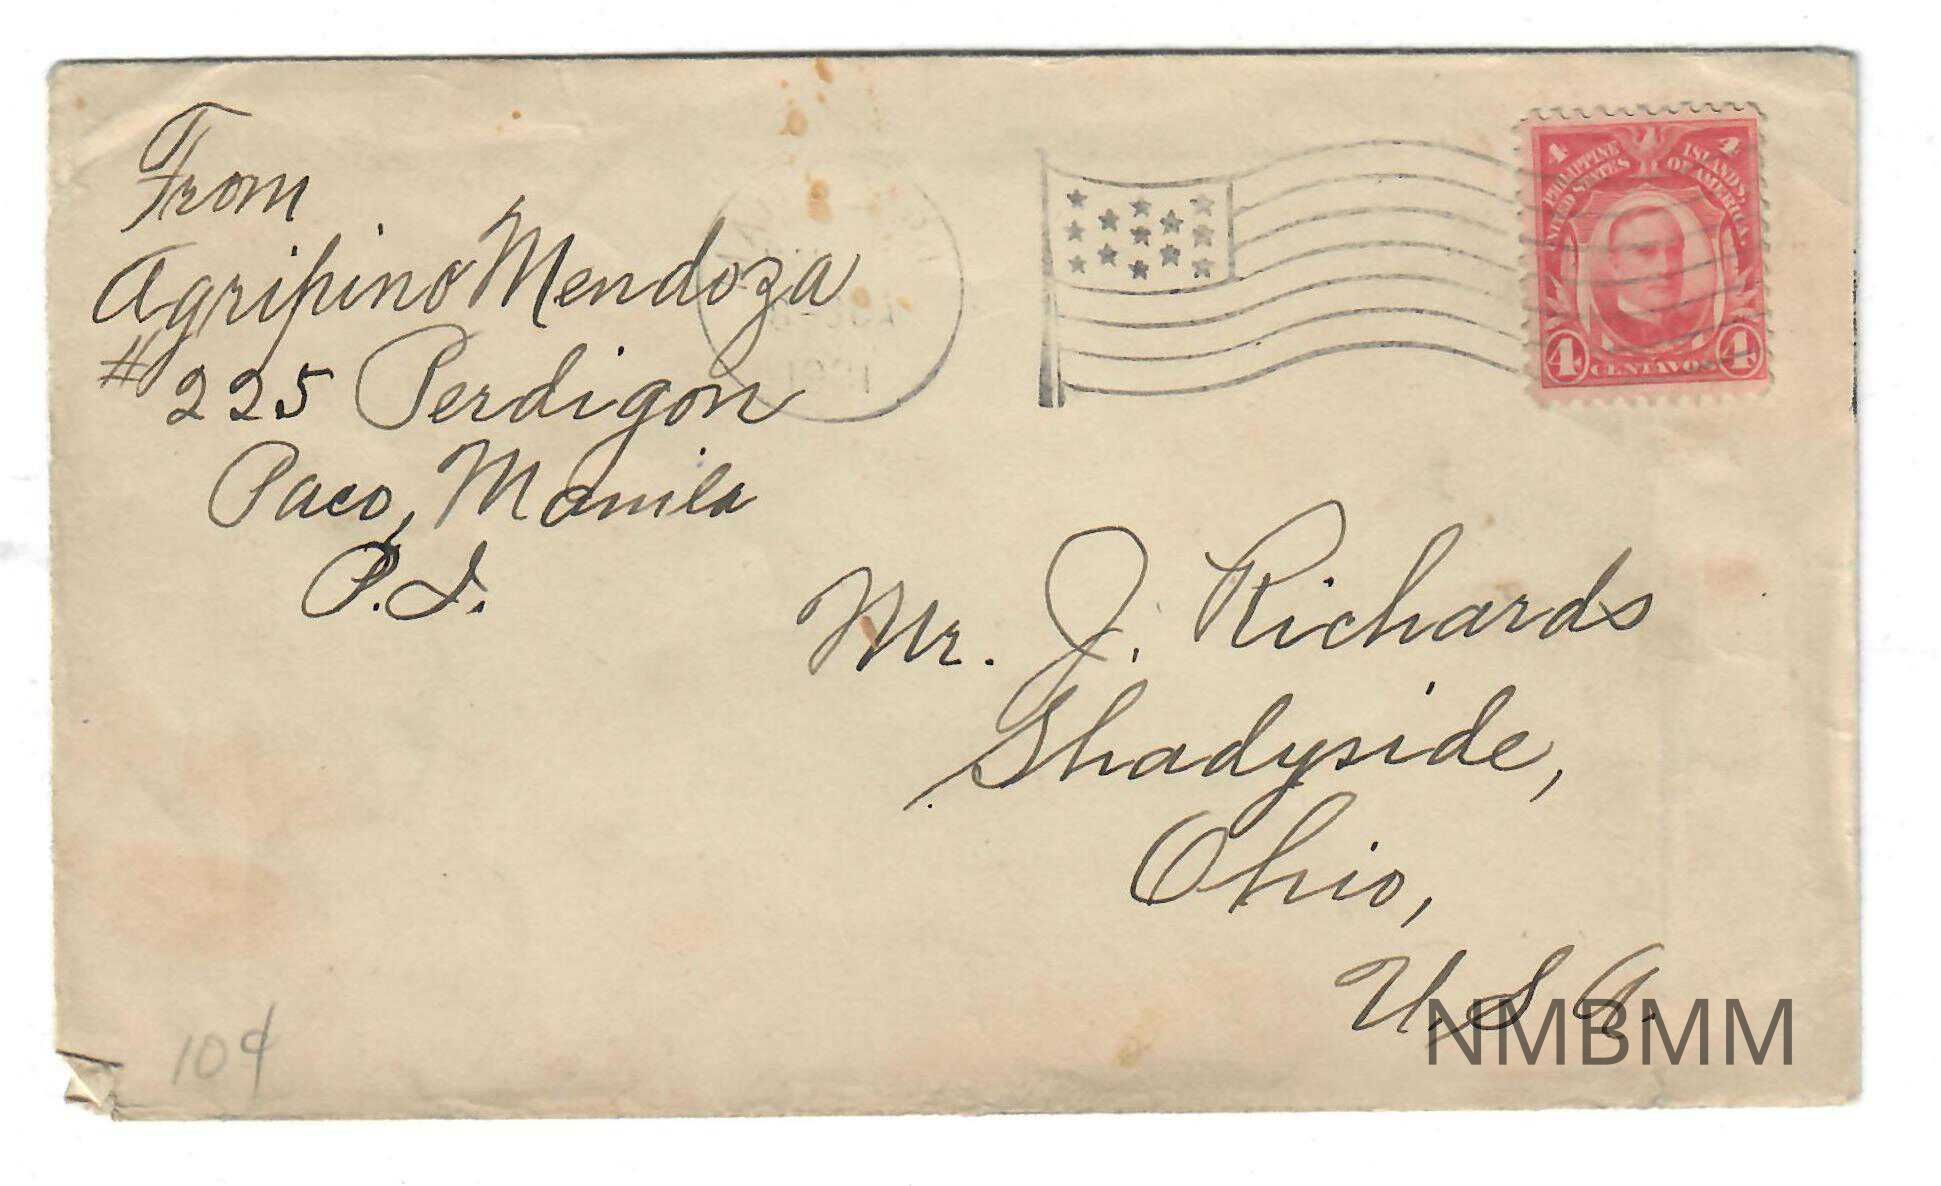 From
Agripino Mendoza
# 225 Perdigon
Paco, Manila
P.I.
4 4
PHILIPPINE ISLANDS,
UNITED STATES OF AMERICA.
4 CENTAVOS 4
Mr. J. Richards
Shadyside,
Ohio,
U.S.A.
NMBMM
10¢